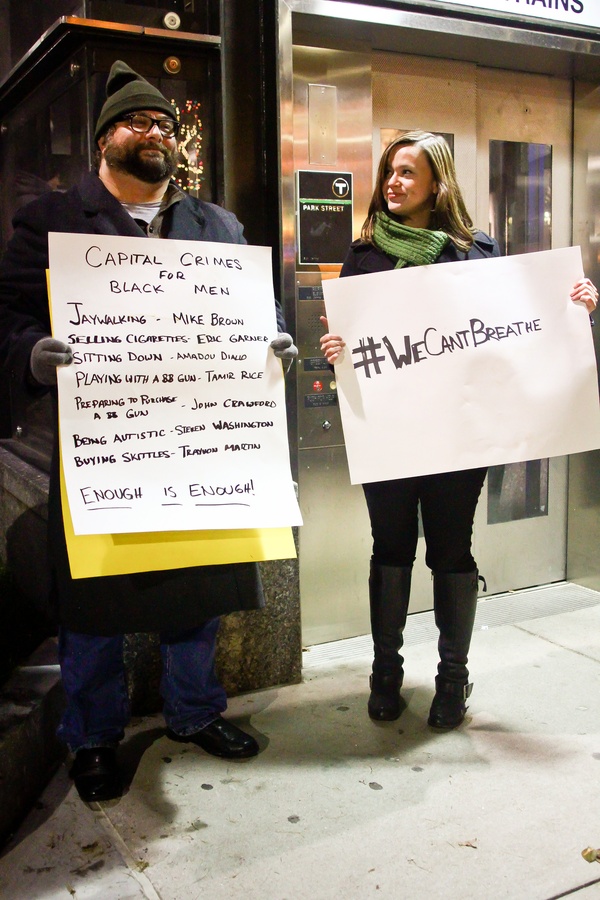 TRAINS
T
PARK STREET
CAPITAL CRIMES
FOR
BLACK MEN
JAYWALKING - MIKE BROWN
SELLING CIGARETTES - ERIC GARNER
SITTING DOWN - AMADOU DIALLO
PLAYING WITH A BB GUN - TAMIR RICE
PREPARING TO PURCHASE
A BB GUN - JOHN CRAWFORD
BEING AUTISTIC - STEVEN WASHINGTON
BUYING SKITTLES - TRAYVON MARTIN
ENOUGH IS ENOUGH!
#WECANTBREATHE